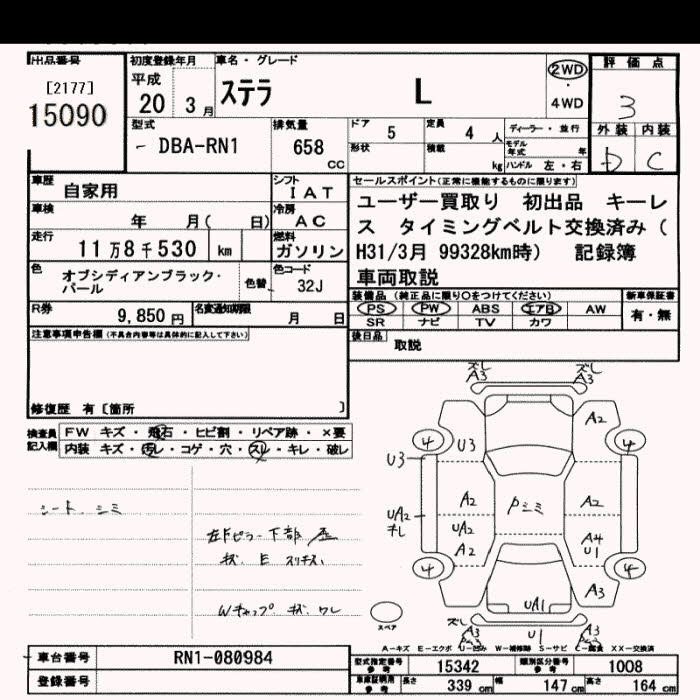 出品番号
[2177]
15090
初度登録年月
平成
20 3月
車名・グレード
ステラ L
2WD
・
4WD
評価点
3
外装 内装
D C
型式
DBA-RN1
排気量
658
CC
ドア 5
定員 4 人
形状
積載 kg
ディーラー・並行
モデル年式 年
ハンドル 左・右
車歴 自家用
シフト
IAT
車検 年 月( 日)
冷房
AC
走行 11万8千530 km
燃料
ガソリン
色 オブシディアンブラック・パール
色替
色コード
32J
R券 9,850 円
名変通知期限
月 日
セールスポイント(正常に機能するものに限ります)
ユーザー買取り 初出品 キーレ
ス タイミングベルト交換済み(
H31/3月 99328km時) 記録簿
車両取説
装備品 (純正品に限り○をつけてください)
PS PW ABS エアB AW
SR ナビ TV カワ
新車保証書
有・無
後日品
取説
注意事項申告欄(不具合内容等は具体的に記入して下さい)
修復歴 有〔箇所 〕
検査員記入欄
FW キズ・飛石・ヒビ割・リペア跡・×要
内装 キズ・汚レ・コゲ・穴・スレ・キレ・破レ
シート、シミ
左Fピラー下部
Wキャップ キズ ワレ
ズレ
A3
ズレ
A3
A2
4
4
U3
U3
A2
Pシミ
A2
UA2
キレ
UA2
A2
A4
U1
4
4
A3
UA1
スペア
ズレ
A3
U1
A3
A-キズ E-エクボ U-凹み W-補修跡 S-サビ C-腐食 XX-交換済
車台番号 RN1-080984
登録番号
型式指定番号
参考
15342
類別区分番号
参考
1008
車庫証明用
参考
長さ 339 cm
幅 147 cm
高さ 164 cm